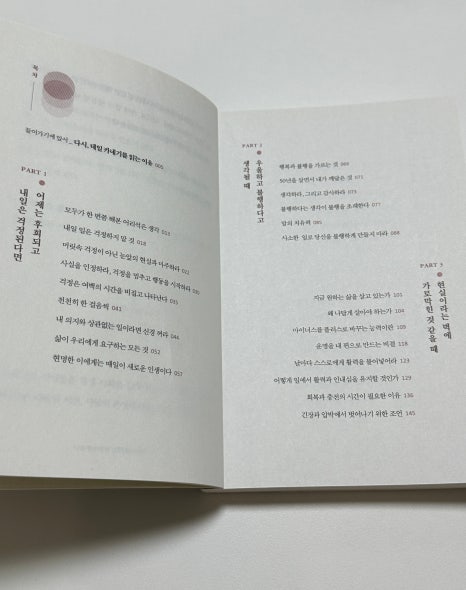 목차
들어가기에 앞서_ 다시, 내일 카네기를 읽는 이유 005
PART 1
어제는 후회되고
내일은 걱정된다면
모두가 한 번쯤 해본 어리석은 생각 013
내일 일은 걱정하지 말 것 018
머릿속 걱정이 아닌 눈앞의 현실과 마주하라 022
사실을 인정하라, 걱정을 멈추고 행동을 시작하라 030
걱정은 여백의 시간을 비집고 나타난다 035
천천히 한 걸음씩 041
내 의지와 상관없는 일이라면 신경 꺼라 044
삶이 우리에게 요구하는 모든 것 052
현명한 이에게는 매일이 새로운 인생이다 057
PART 2
우울하고 불행하다고
생각될 때
행복과 불행을 가르는 것 069
50년을 살면서 내가 깨달은 것 071
생각하라, 그리고 감사하라 073
불행하다는 생각이 불행을 초래한다 077
일의 치유력 085
사소한 일로 당신을 불행하게 만들지 마라 088
PART 3
현실이라는 벽에
가로막힌 것 같을 때
지금 원하는 삶을 살고 있는가 101
왜 나답게 살아야 하는가 104
마이너스를 플러스로 바꾸는 능력이란 109
운명을 내 편으로 만드는 비결 118
날마다 스스로에게 활력을 불어넣어라 123
어떻게 일에서 활력과 인내심을 유지할 것인가 129
회복과 충전의 시간이 필요한 이유 136
긴장과 압박에서 벗어나기 위한 조언 145